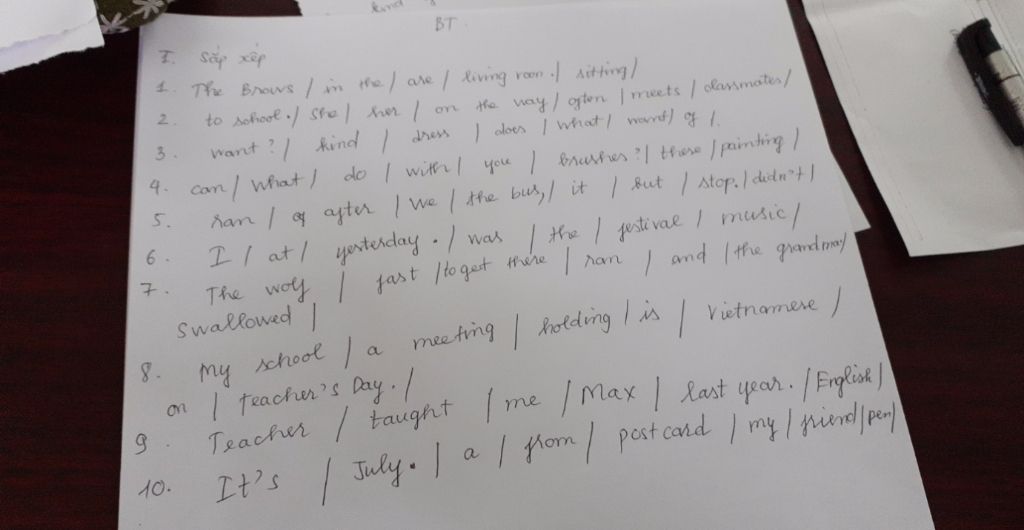 kind
BT.
I. Sắp xếp
1. The Browns / in the / are / living room. / sitting /
2. to school. / She / her / on the way / often / meets / classmates /
3. want? / kind / dress / does / what / want / of /.
4. can / What / do / with / you / brushes? / these / painting /
5. ran / after / we / the bus, / it / but / stop. / didn't /
6. I / at / yesterday. / was / the / festival / music /
7. The wolf / fast / to get there / ran / and / the grandma /
swallowed /
8. My school / a meeting / holding / is / Vietnamese /
on / Teacher's Day. /
9. Teacher / taught / me / Max / last year. / English /
10. It's / July. / a / from / postcard / my / friend / pen /